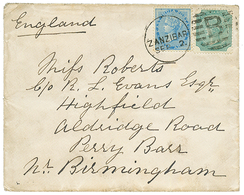 England
ZANZIBAR
SE
Miss Roberts
c/o R. L. Evans Esqr
Highfield
Aldridge Road
Perry Barr
Nr. Birmingham